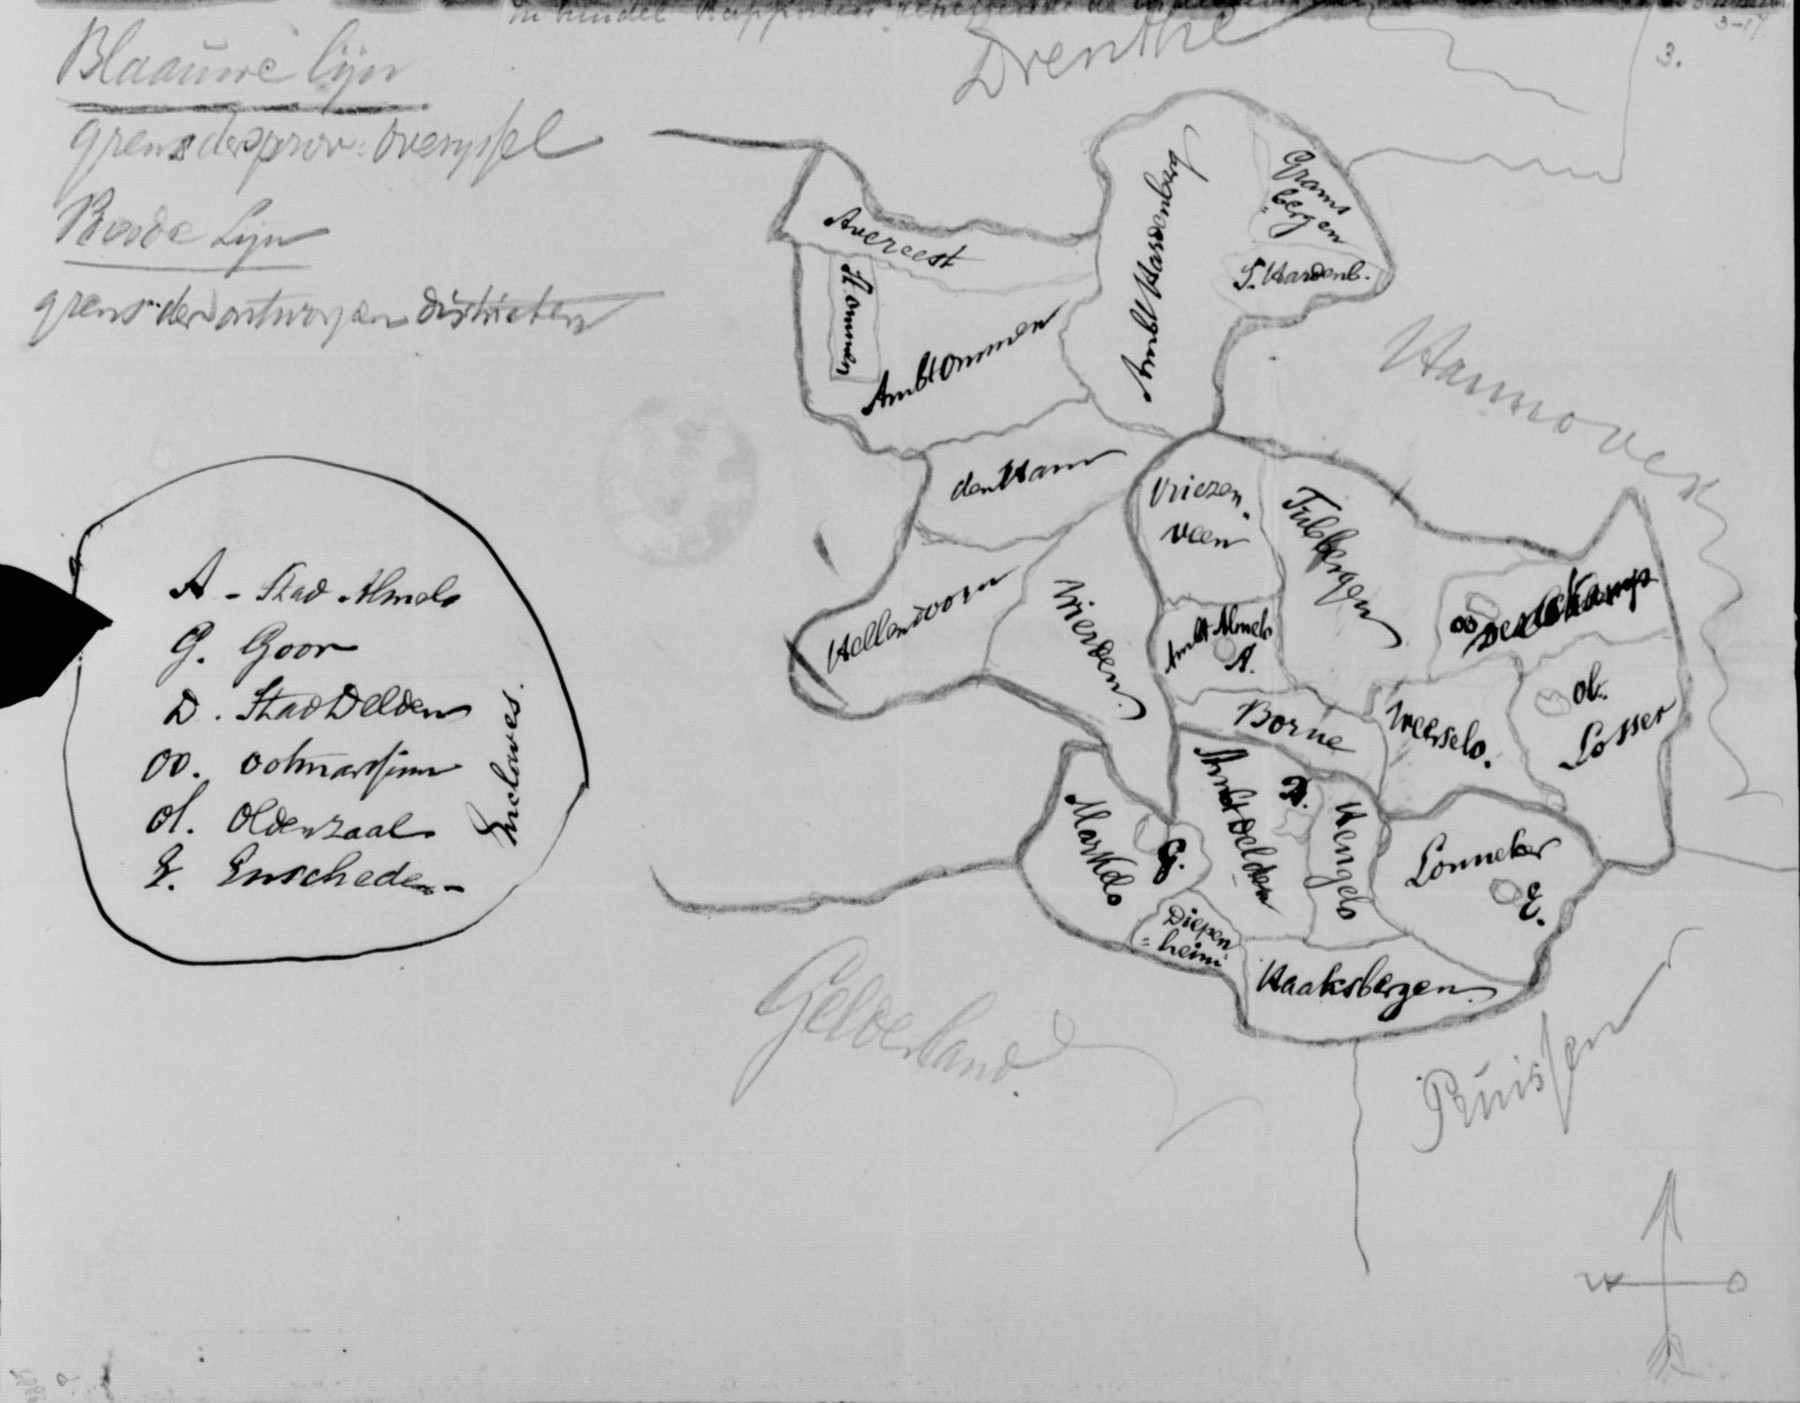 in bundel Rapporten
3-17
3.
Blaauwe lijn
grens der prov: Overijssel
Roode Lijn
grens der ontworpen districten
Drenthe
Hannover
Gelderland.
Pruissen
Avereest
St. Ommen
Ambt Ommen
Ambt Hardenberg
Grams
=bergen
S. Hardenb.
den Ham
Vriezen
veen
Tubbergen
Hellendoorn
Wierden.
Ambt Almelo
A.
oo
Denekamp
Borne
Weerselo.
ol.
Losser
Markelo
G.
Ambt Delden
D.
Hengelo
Lonneker
E.
Diepen
=heim
Haaksbergen.
A - Stad Almelo
G. Goor
D. Stad Delden
oo. ootmarssum
ol. Oldenzaal
E. Enschede -
Enclaves.
W
O